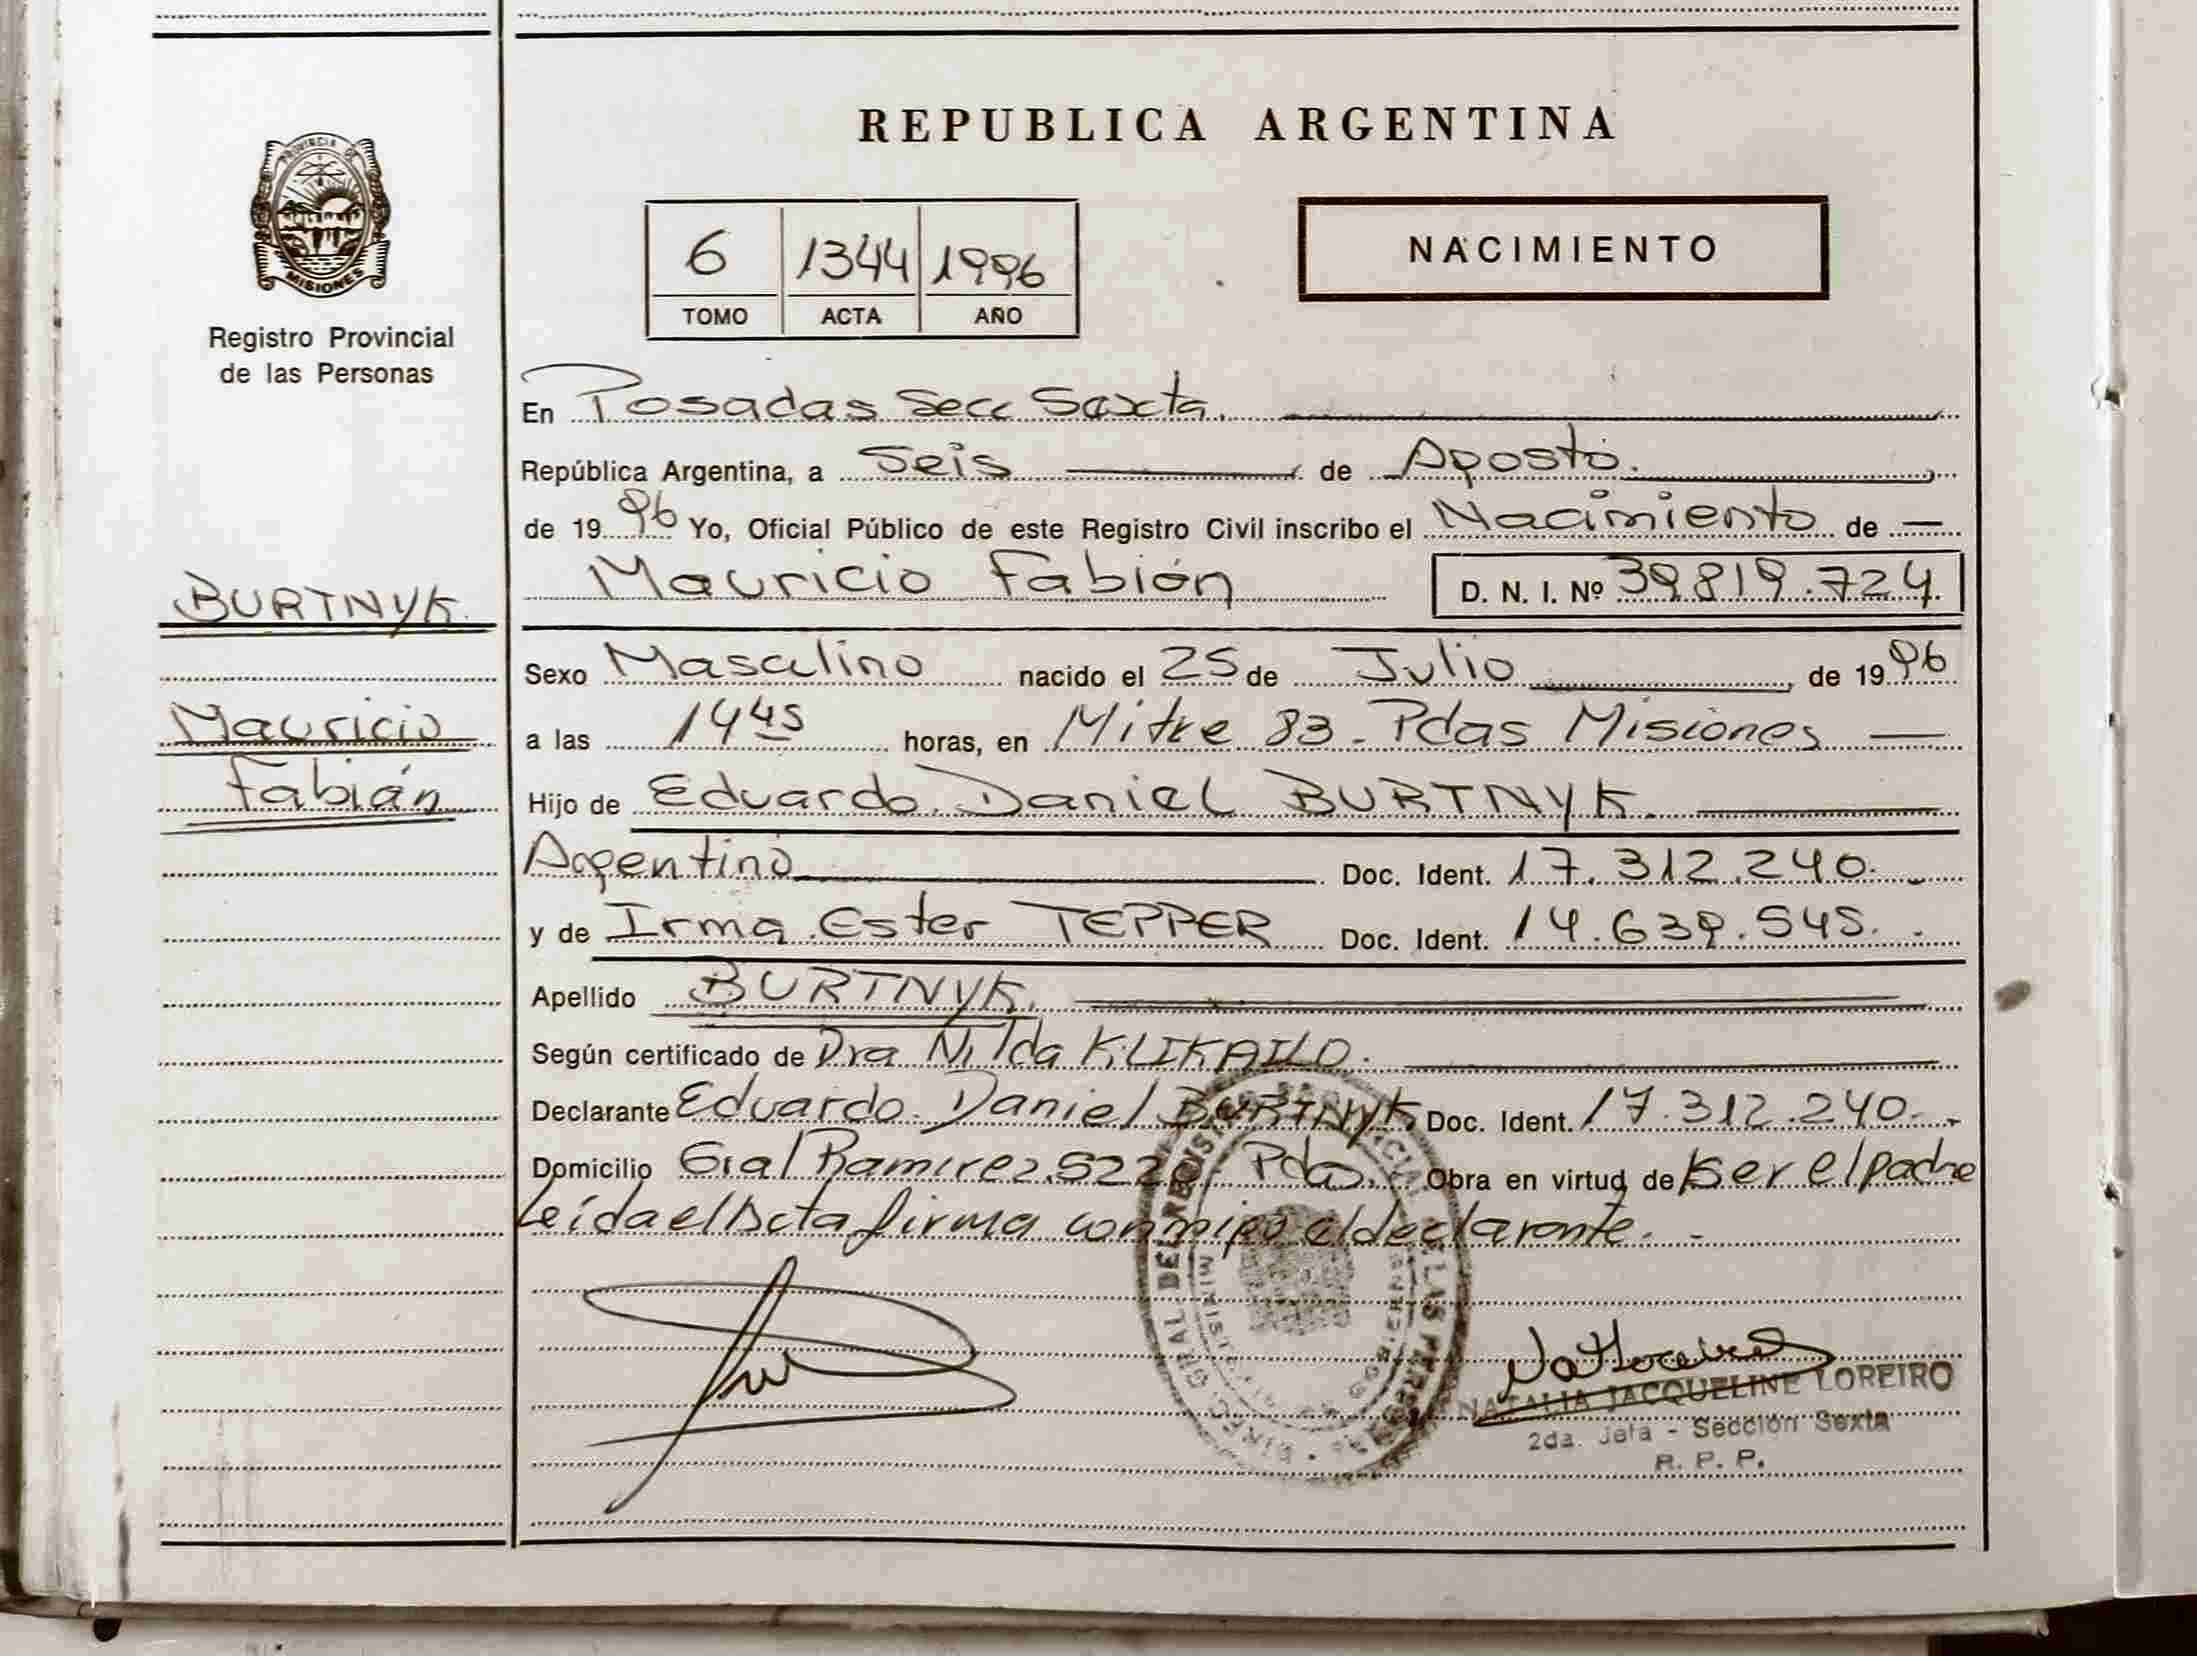 PROVINCIA DE
MISIONES
Registro Provincial
de las Personas
BURTNYK.
Mauricio
Fabián
REPUBLICA ARGENTINA
6 1344 1996
TOMO ACTA AÑO
NACIMIENTO
En Posadas Secc Sexta.
República Argentina, a Seis de Agosto.
de 1996 Yo, Oficial Público de este Registro Civil inscribo el Nacimiento de
Mauricio Fabián D. N. I. Nº 39.819.724
Sexo Masculino nacido el 25 de Julio de 1996
a las 14 45 horas, en Mitre 83. Pdas Misiones
Hijo de Eduardo Daniel BURTNYK.
Argentino Doc. Ident. 17.312.240.
y de Irma Ester TEPPER Doc. Ident. 14.639.545.
Apellido BURTNYK.
Según certificado de Dra Nilda KLIKAILO.
Declarante Eduardo Daniel BURTNYK Doc. Ident. 17.312.240.
Domicilio Gral Ramirez Pdas. Obra en virtud de ser el padre
Leída el Acta firma conmigo el declarante.
NATALIA JACQUELINE LOREIRO
2da. Jefa - Sección Sexta
R. P. P.